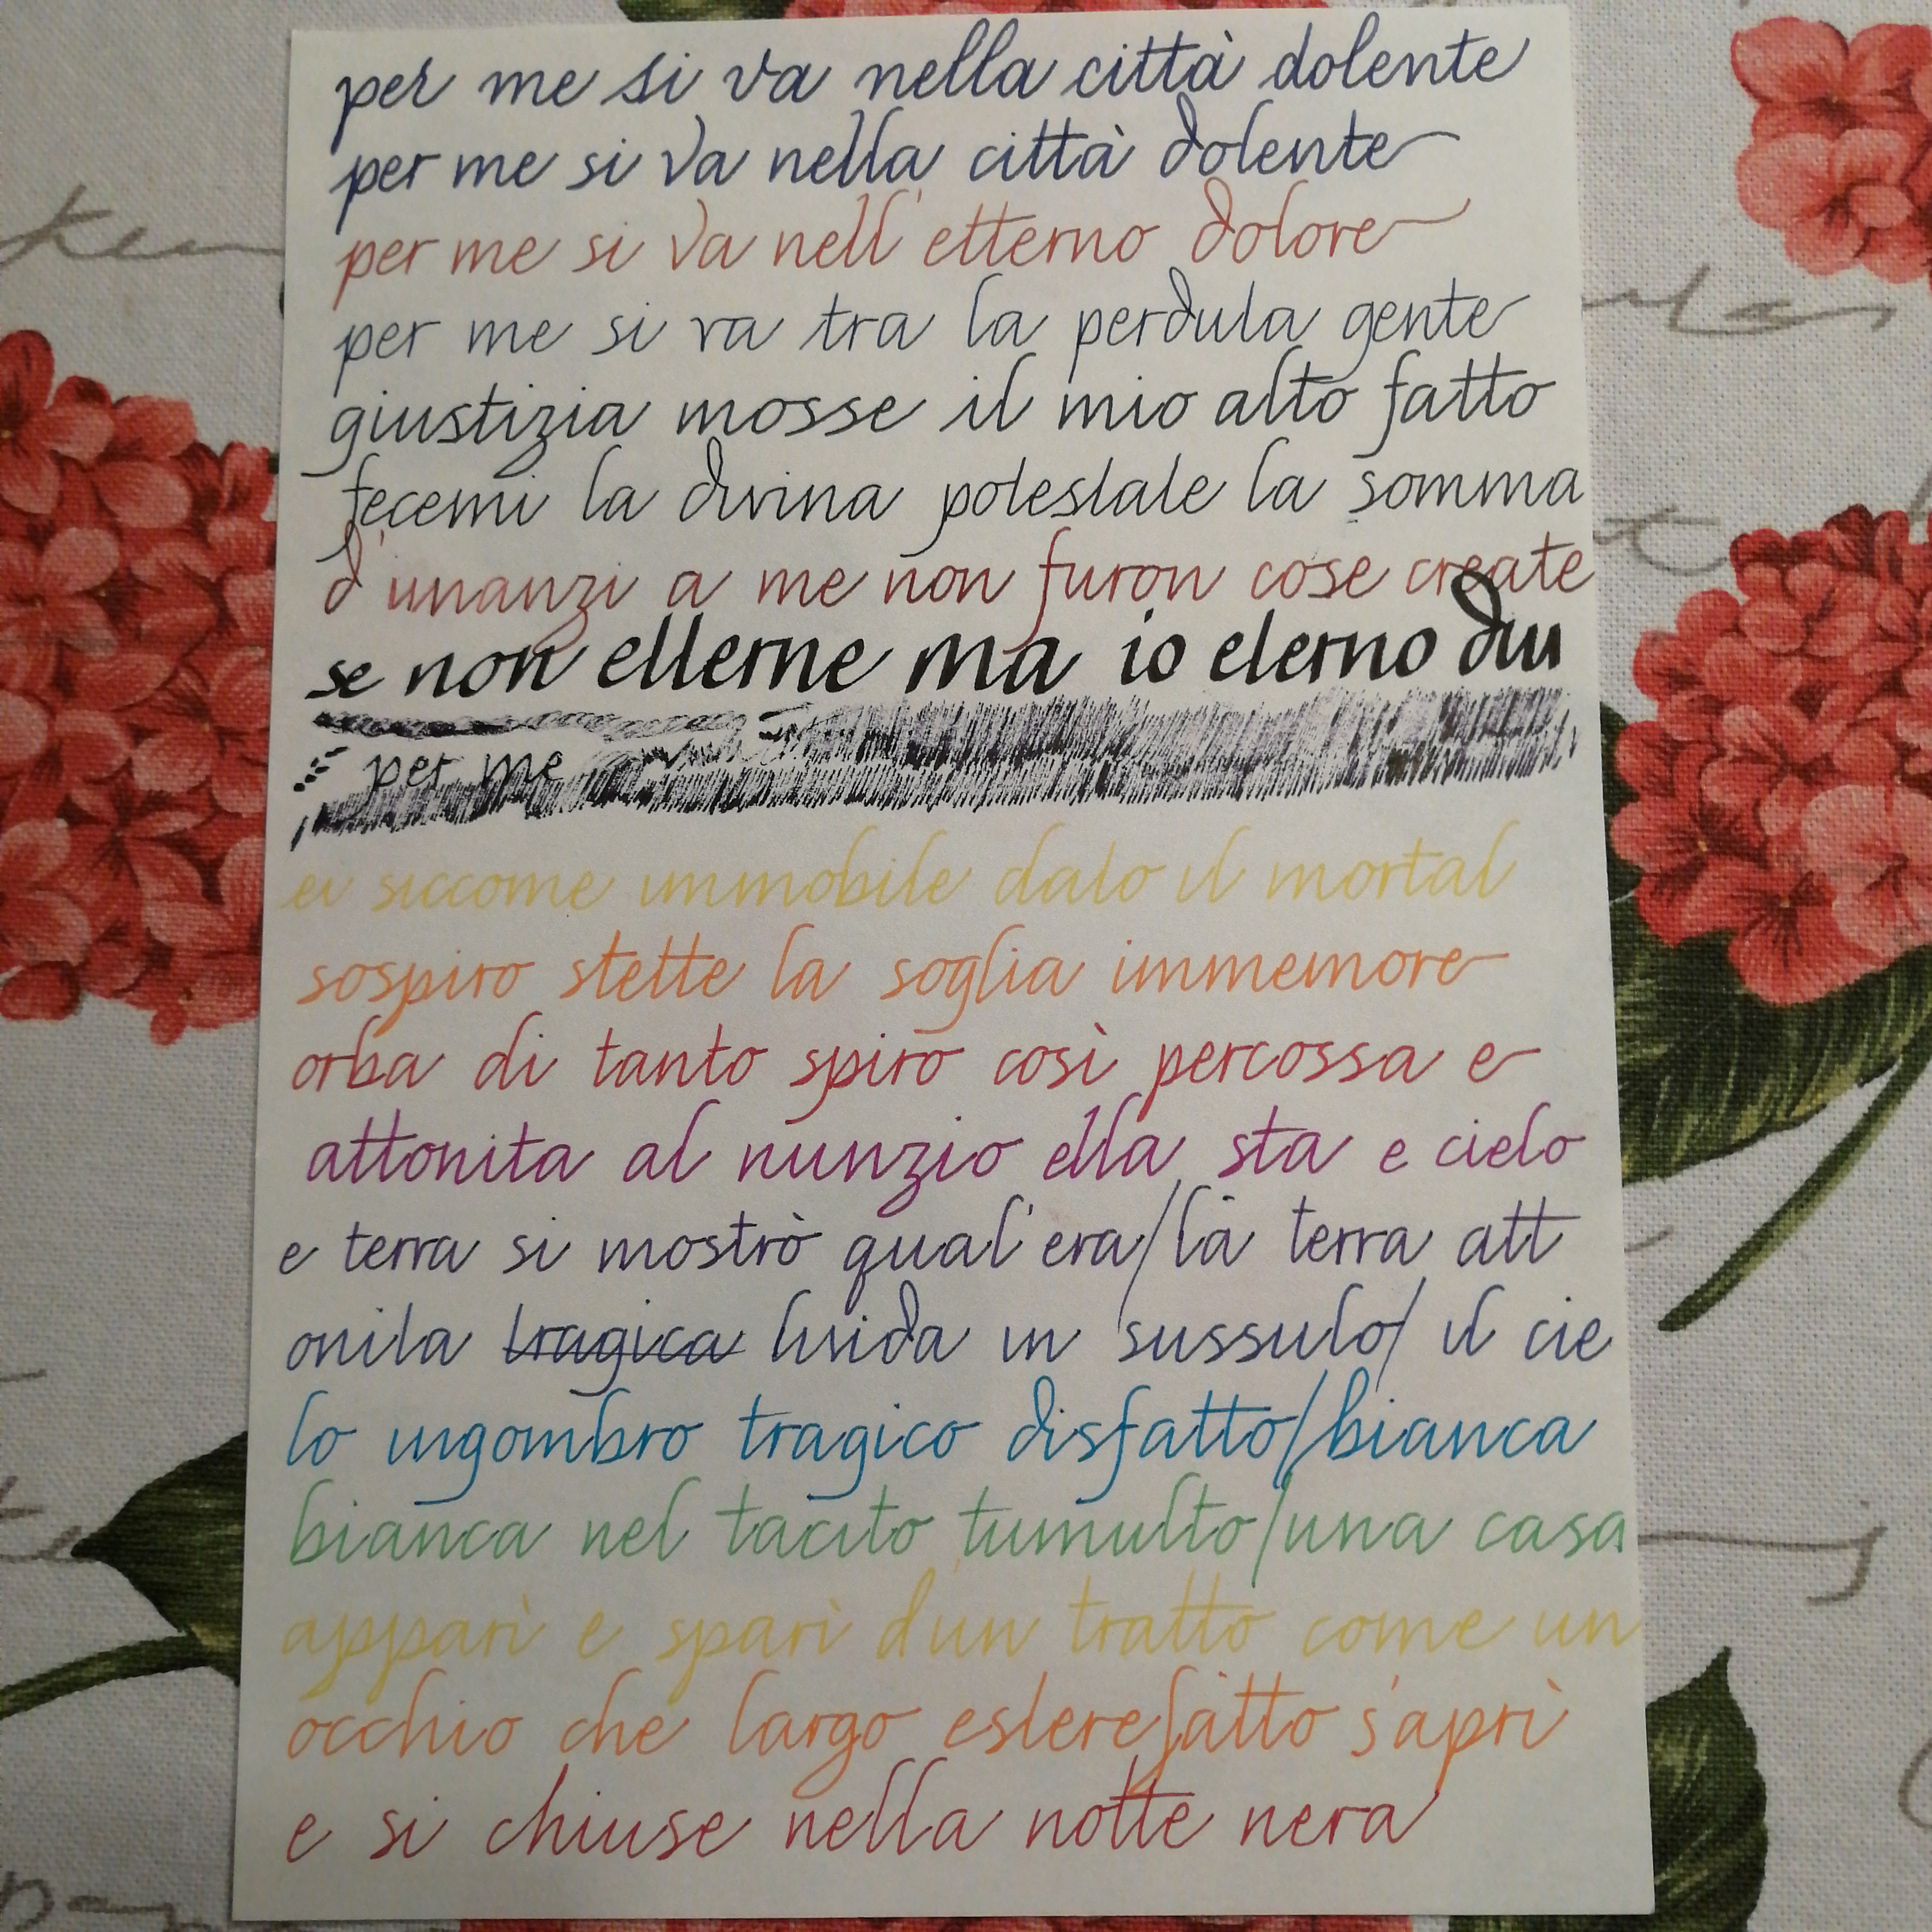 per me si va nella città dolente
per me si va nella città dolente
per me si va nell'etterno dolore
per me si va tra la perduta gente
giustizia mosse il mio alto fatto
fecemi la divina potestate la somma
d'inanzi a me non furon cose create
se non etterne ma io eterno du
per me
ei siccome immobile dato il mortal
sospiro stette la soglia immemore
orba di tanto spiro così percossa e
attonita al nunzio ella sta e cielo
e terra si mostrò qual'era/la terra att
onita tragica livida in sussulto/ il cie
lo ingombro tragico disfatto/bianca
bianca nel tacito tumulto/una casa
apparì e sparì d'un tratto come un
occhio che largo esterefatto s'aprì
e si chiuse nella notte nera